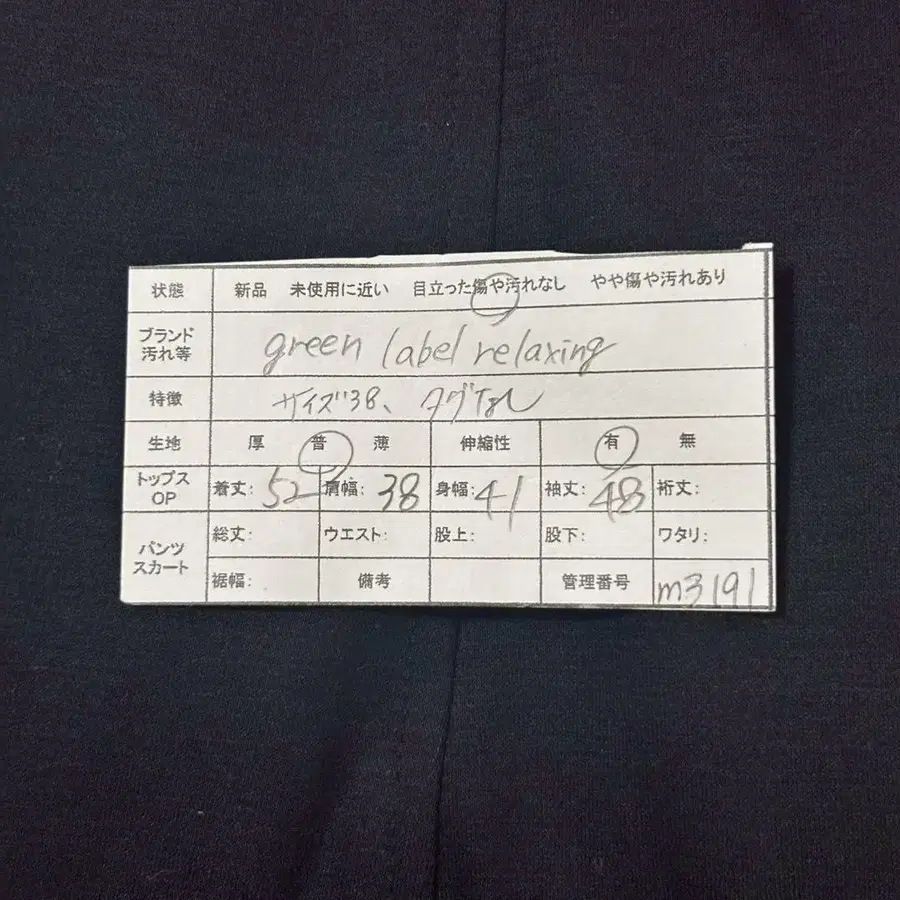 状態 新品 未使用に近い 目立った傷や汚れなし やや傷や汚れあり
ブランド
汚れ等
green label relaxing
特徴 サイズ38、タグなし
生地 厚 普 薄 伸縮性 有 無
トップス
OP
着丈: 52 肩幅: 38 身幅: 41 袖丈: 48 裄丈:
パンツ
スカート
総丈: ウエスト: 股上: 股下: ワタリ:
裾幅: 備考 管理番号 m3191